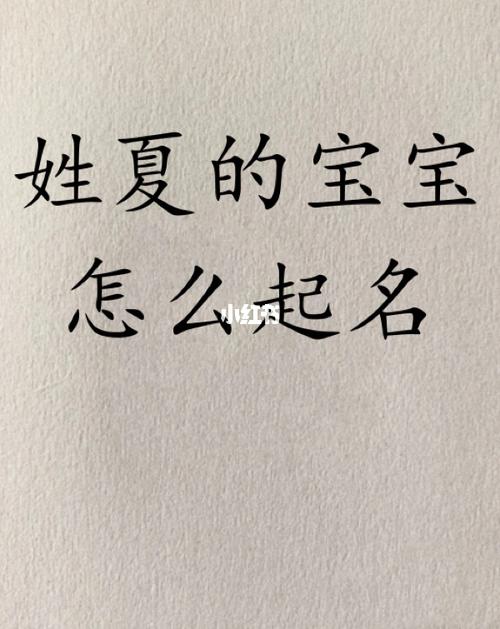 姓夏的宝宝
怎么起名
小红书